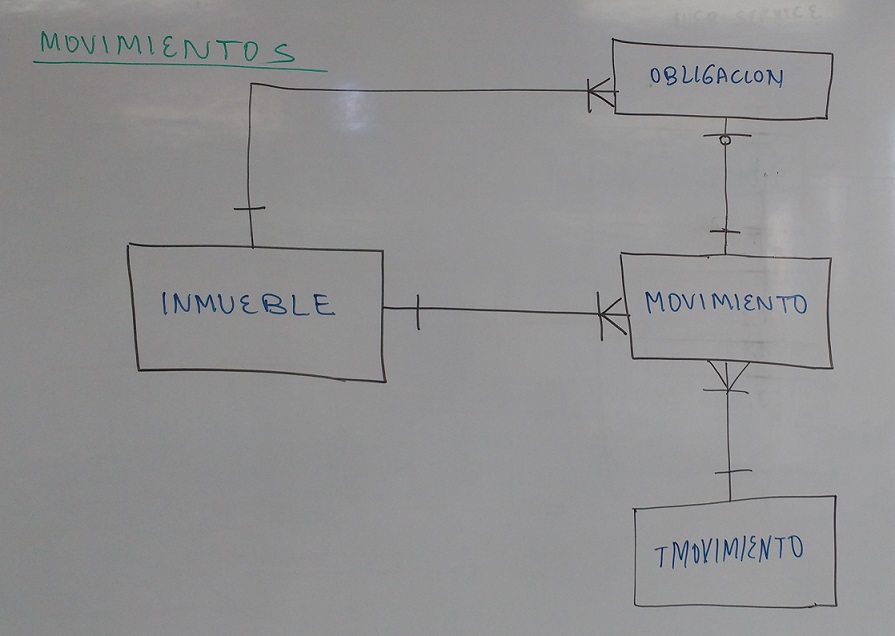 MOVIMIENTOS
OBLIGACION
INMUEBLE
MOVIMIENTO
TMOVIMIENTO